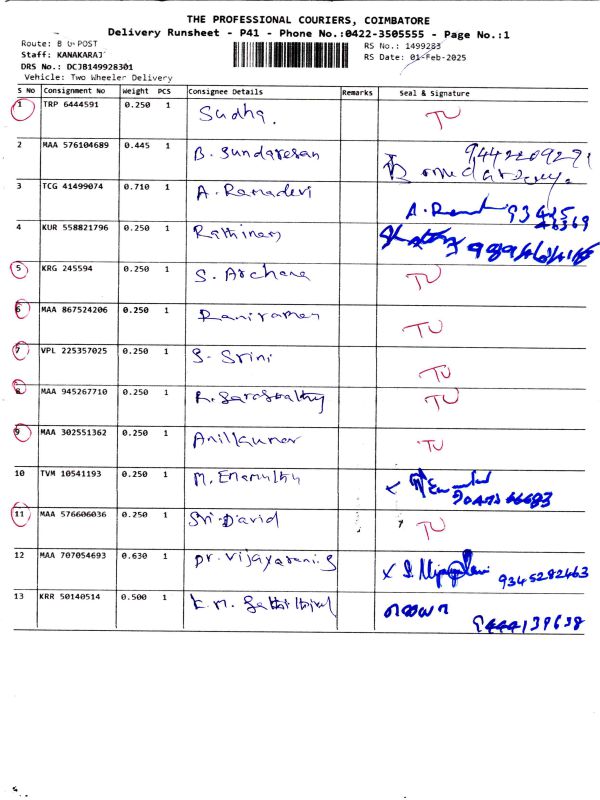 THE PROFESSIONAL COURIERS, COIMBATORE
Delivery Runsheet - P41 - Phone No.:0422-3505555 - Page No.:1
Route: B G POST RS No.: 1499283
Staff: KANAKARAJ RS Date: 01-Feb-2025
DRS No.: DCJB149928301
Vehicle: Two Wheeler Delivery
S No Consignment No Weight PCS Consignee Details Remarks Seal & Signature
1 TRP 6444591 0.250 1 Sudha. TU
2 MAA 576104689 0.445 1 B. Sundaresan 9442209291
3 TCG 41499074 0.710 1 A. Ramadevi A. Ram 93425
46369
4 KUR 558821796 0.250 1 Rathinam
5 KRG 245594 0.250 1 S. Archana TU
6 MAA 867524206 0.250 1 Raniraman TU
7 VPL 225357025 0.250 1 S. Srini TU
8 MAA 945267710 0.250 1 TU
9 MAA 302551362 0.250 1 Anilkumar TU
10 TVM 10541193 0.250 1
11 MAA 576606036 0.250 1 Sri-David TU
12 MAA 707054693 0.630 1 Dr. Vijayarani.S 9345282463
13 KRR 50140514 0.500 1 9444139638